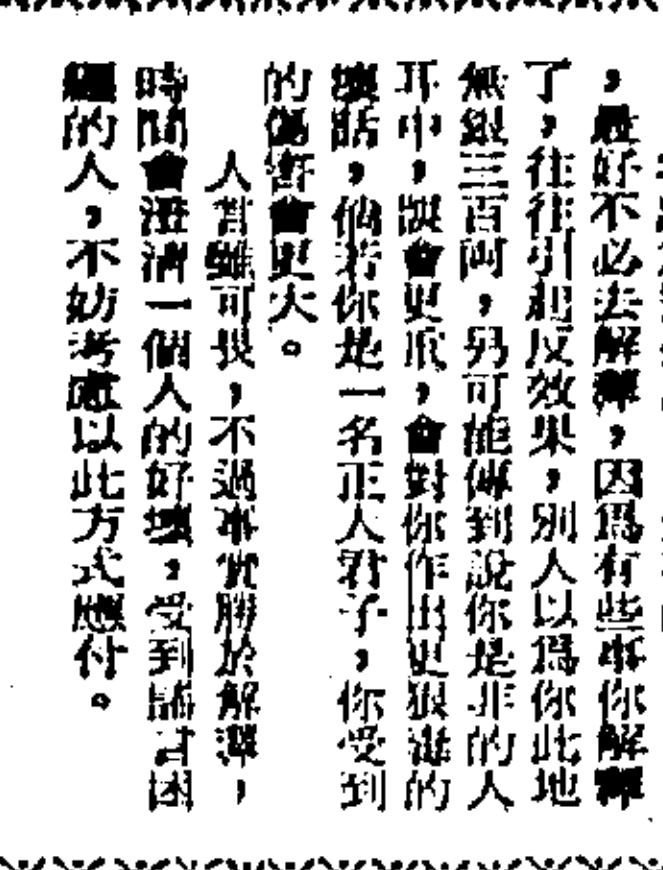 ，最好不必去解釋，因爲有些事你解釋
了，往往引起反效果，別人以爲你此地
無銀三百両，另可能傳到說你是非的人
耳中，誤會更深，會對你作出更狠毒的
壞話，倘若你是一名正人君子，你受到
的傷害會更大。
人言雖可畏，不過事實勝於解釋，
時間會澄清一個人的好壞，受到謠言困
的人，不妨考慮以此方式應付。